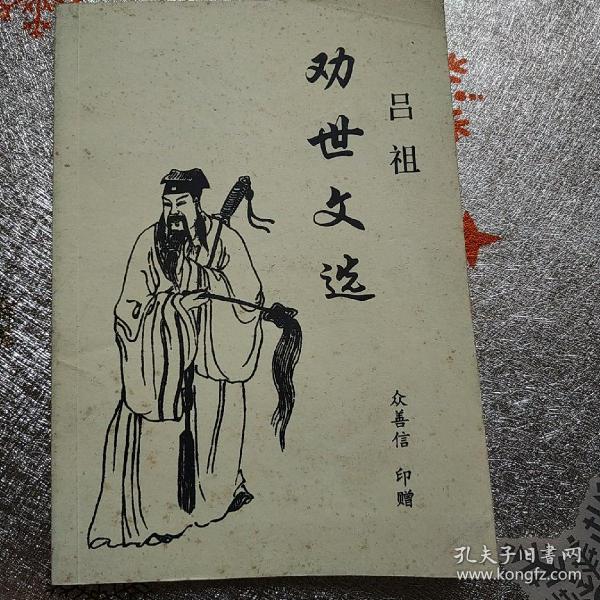 吕祖
劝世文选
众善信 印赠
孔夫子旧书网
www.kongfz.com